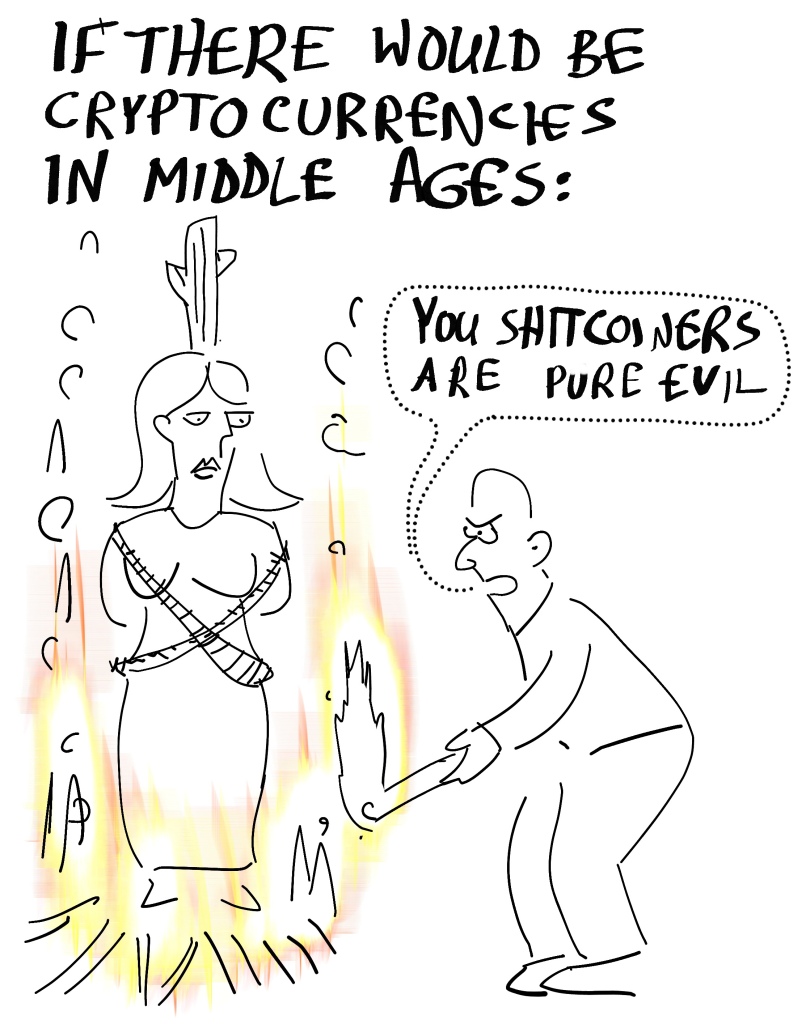 IF THERE WOULD BE
CRYPTOCURRENCIES
IN MIDDLE AGES:
YOU SHITCOINERS
ARE PURE EVIL